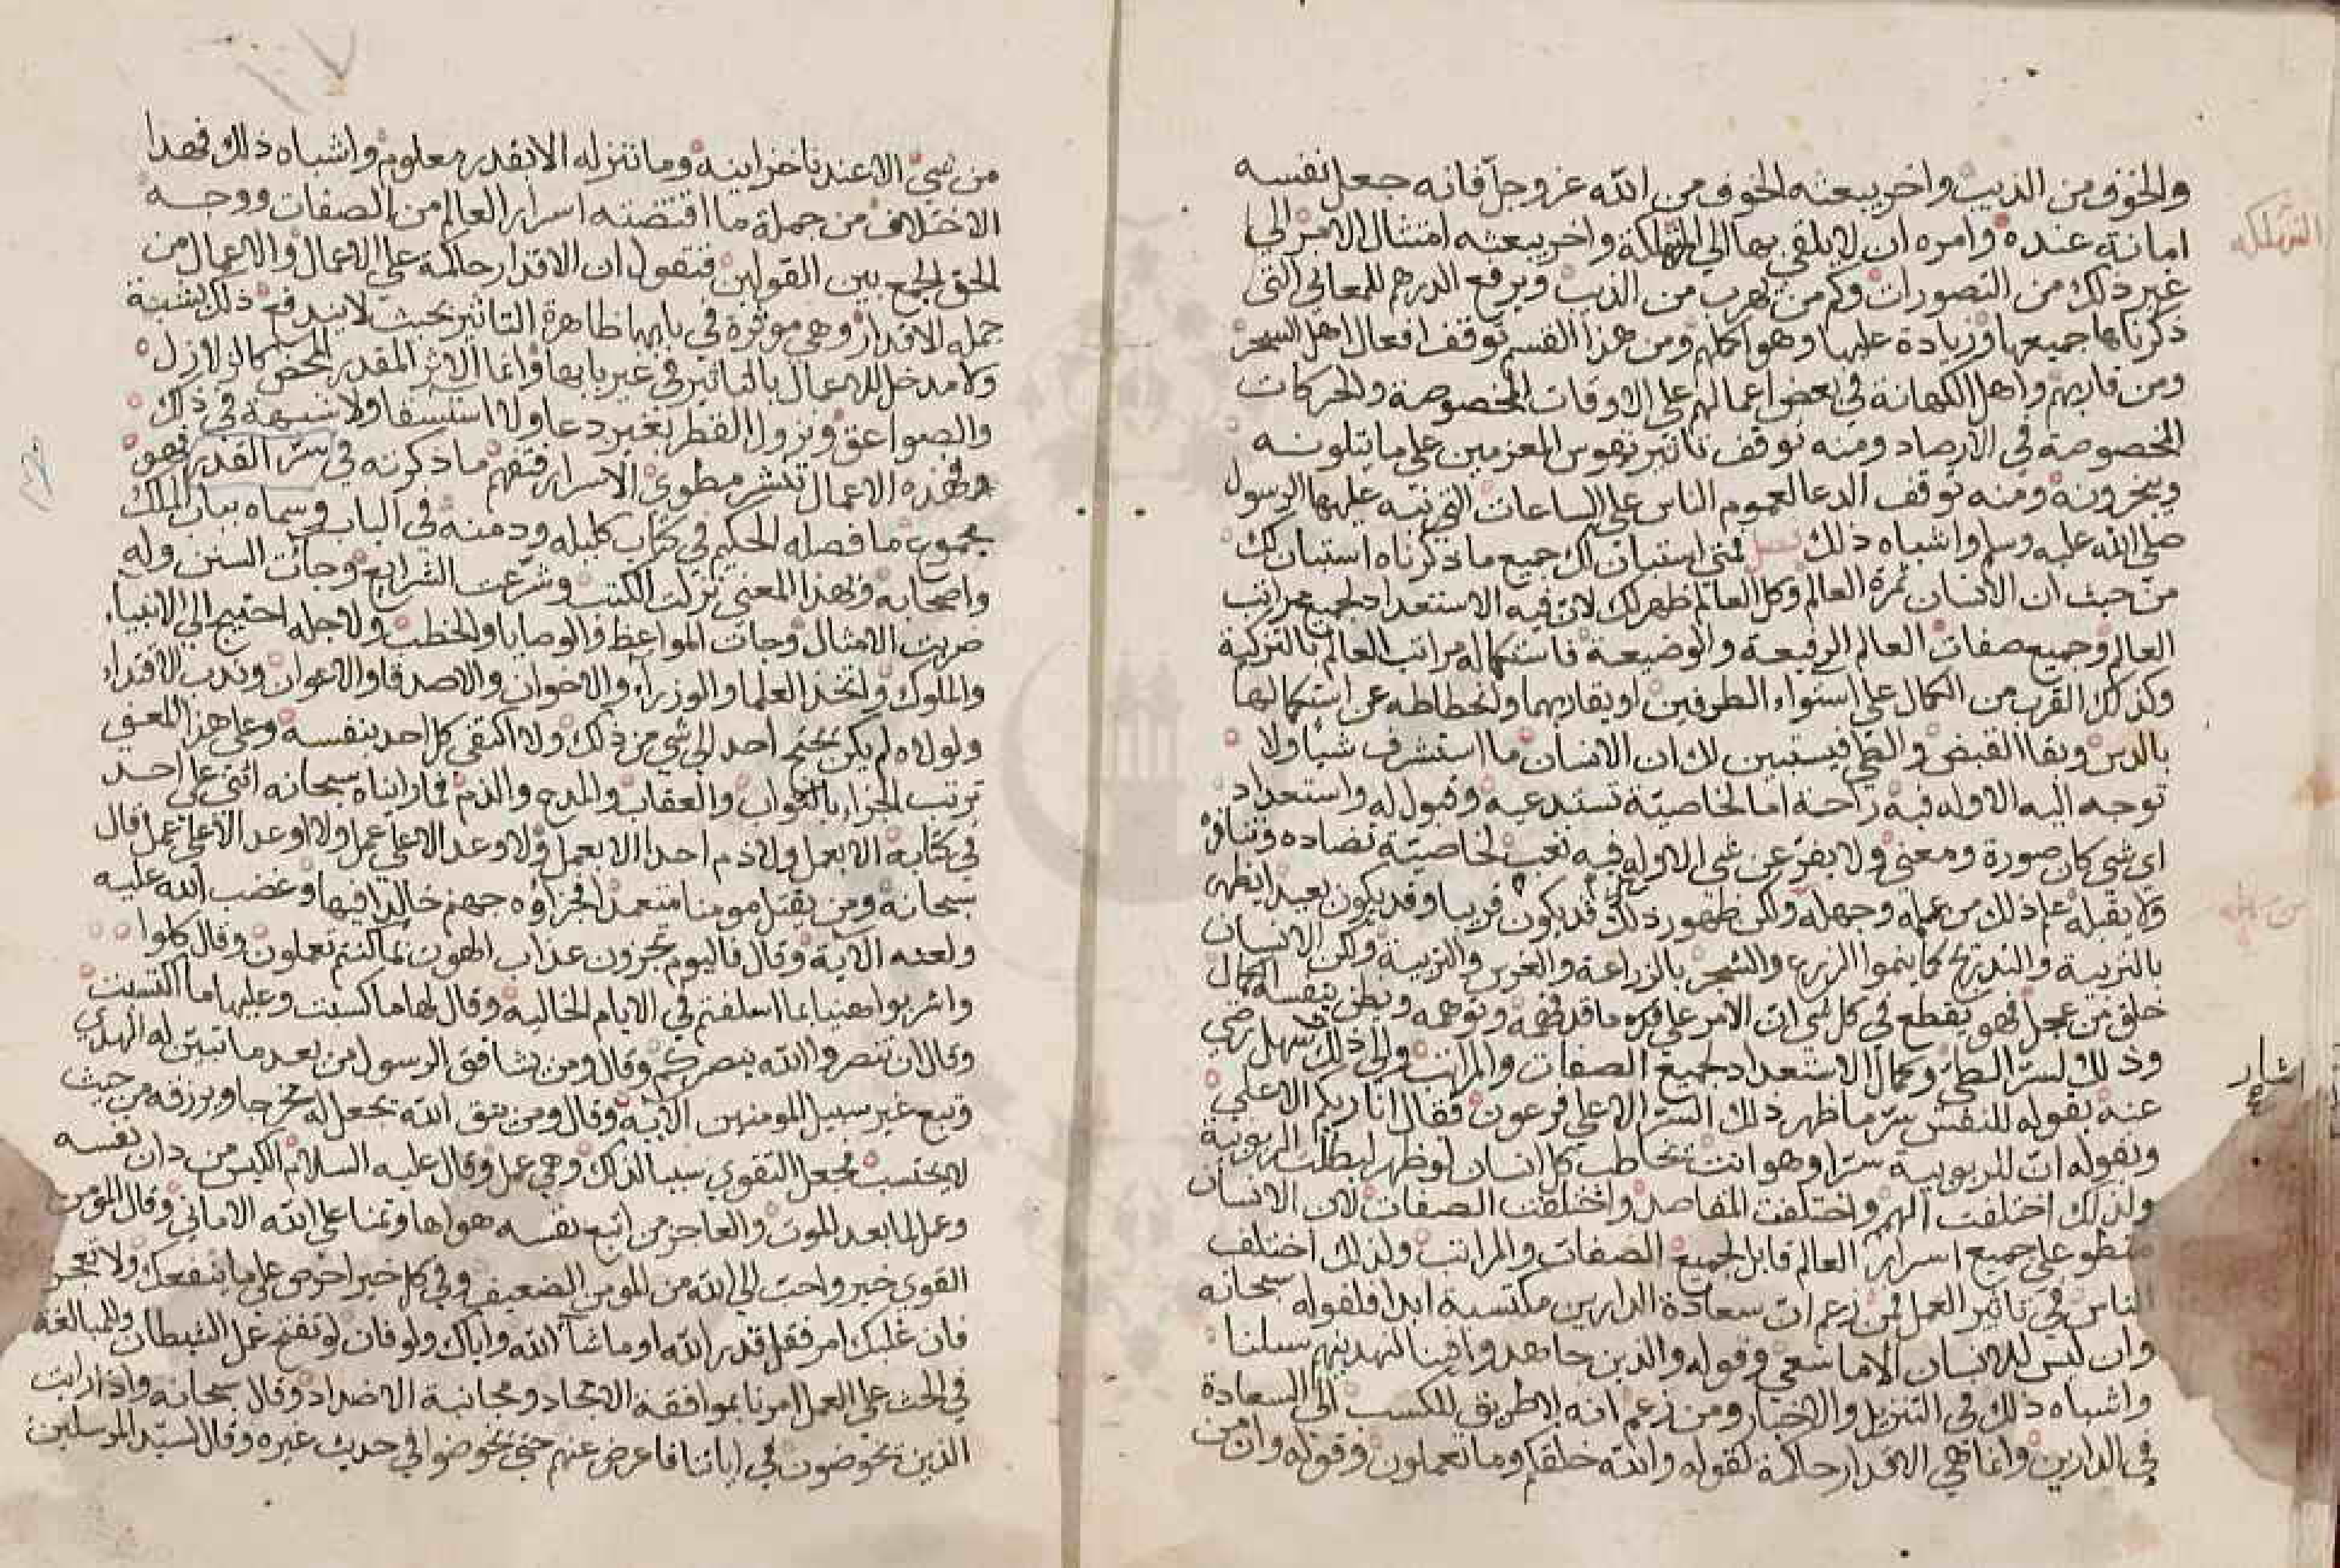 والخوف من الذيب واخر يبعثه الخوف من الله عز وجل فانه جعل نفسه
امانة عنده وامره ان لا يلقي بها الى التهلكة واخر يبعثه امتثال الامر الي
غير ذلك من التصورات وكم من يهرب من الذيب ويرفع الدرهم للمعاني التي
ذكرناها جميعها وزيادة عليها وهو اكلهم ومن هذا القسم توقف افعال اهل السحر
ومن قاربهم واهل الكهانة في بعض اعمالهم على الاوقات المخصوصة والحركات
المخصوصة في الارصاد ومنه توقف تاثير نفوس المعزمين على ما يتلونه
ويبخرونه ومنه توقف الدعا لعموم الناس على الساعات التي نبه عليها الرسول
صلى الله عليه وسلم واشباه ذلك فصل فمتى استبان لك جميع ما ذكرناه استبان لك
من حيث ان الانسان ثمرة العالم وكل العالم ظهر لك لان فيه الاستعداد لجميع مراتب
العالم وجميع صفات العالم الرفيعة والوضيعة فاستكماله مراتب العالم بالتزكية
وكذلك القرب من الكمال على استواء الطرفين او يقاربهما وانحطاطه عن استكمالها
بالدس وبقا القبض والطي فيستبين لك ان الانسان ما استشرف شيا ولا
توجه اليه الا وله فيه راحة اما لخاصية تستدعيه وقبول له واستعداد
اي شي كان صورة ومعنى ولا يفر عن شي الا وله فيه تعب لخاصية تضاده وتنافره
ولا يقبله علم ذلك من علمه وجهله ولكن ظهور ذلك قد يكون قريبا وقد يكون بعيدا يظهر
بالتربية والتدريج كما ينموا الزرع والشجر بالزراعة والغرس والتربية ولكن الانسان
خلق من عجل فهو يقطع في كل شي ان الامر على قدر ما قد فهمه وتوهمه ويظن بنفسه الكمال
وذلك لسر الطي وكمال الاستعداد لجميع الصفات والمراتب والى ذلك اشار سهل رضي
عنه بقوله للنفس سر ما ظهر ذلك السر الا على فرعون فقال انا ربكم الاعلى
وبقوله ان للربوبية سرا وهو انت تخاطب كل انسان لو ظهر لبطلت الربوبية
ولذلك اختلفت الهمم واختلفت المقاصد واختلفت الصفات لان الانسان
منطو على جميع اسرار العالم قابل لجميع الصفات والمراتب ولذلك اختلف
الناس في تاثير العمل فمن زعم ان سعادة الدارين مكتسبة ابدا فلقوله سبحانه
وان ليس للانسان الا ما سعى وقوله والذين جاهدوا فينا لنهدينهم سبلنا
واشباه ذلك في التنزيل والاخبار ومن زعم انه لا طريق للكسب الى السعادة
في الدارين وانما هي الاقدار حاكمة لقوله والله خلقكم وما تعملون وقوله وان من
التهلكه
اشار
من شي الا عندنا خزاينه وما ننزله الا بقدر معلوم واشباه ذلك فهذا
الاختلاف من جملة ما اقتضته اسرار العالم من الصفات ووجه
الحق الجمع بين القولين فنقول ان الاقدار حاكمة على الاعمال والاعمال من
جمله الاقدار وهي موثرة في بابها ظاهرة التاثير بحيث لا يندفع ذلك بشبهة
ولا مدخل للاعمال بالتاثير في غير بابها وانما الاثر المقدر المحض كالزلازل
والصواعق ونزول القطر بغير دعا ولا استسقا ولا شبهة في ذلك
وبهذه الاعمال تنشر مطوي الاسرار فتفهم ما ذكرته في سر القدر فهو
مجموع ما فصله الحكيم في كتاب كليله ودمنه في الباب وسماه بباب الملك
واصحابه ولهذا المعنى نزلت الكتب وشرعت الشرايع وجات السنن وله
ضربت الامثال وجات المواعظ والوصايا والخطب ولاجله احتيج الى الانبياء
والملوك واتخذ العلما والوزراء والاخوان والاصدقا والاعوان وندب الاقتداء
ولولاه لم يكن يحتج احد الى شي من ذلك ولا اكتفى كل احد بنفسه وعلى هذا المعنى
ترتب الجزاء بالثواب والعقاب والمدح والذم فما راينا سبحانه اثنى على احد
في كتابه الا بعمل ولا ذم احدا الا بعمل ولا وعد الا على عمل ولا اوعد الا على عمل قال
سبحانه ومن يقتل مومنا متعمدا فجزاؤه جهنم خالدا فيها وغضب الله عليه
ولعنه الاية وقال فاليوم تجزون عذاب الهون بما كنتم تعملون وقال كلوا
واشربوا هنيا بما اسلفتم في الايام الخاليه وقال لها ما كسبت وعليها ما اكتسبت
وقال ان تنصروا الله ينصركم وقال ومن يشاقق الرسول من بعد ما تبين له الهدي
ويتبع غير سبيل المومنين الاية وقال ومن يتق الله يجعل له مخرجا ويرزقه من حيث
لا يحتسب فجعل التقوي سببا لذلك وهي عمل وقال عليه السلام الكيس من دان نفسه
وعمل لما بعد الموت والعاجز من اتبع نفسه هواها وتمنا على الله الاماني وقال المومن
القوي خير واحب الى الله من المومن الضعيف وفي كل خير احرص على ما ينفعك ولا تعجز
فان غلبك امر فقل قدر الله وما شاء الله واياك ولو فان لو تفتح عمل الشيطان والمبالغة
في الحث على العمل امرنا بموافقة الانجاد ومجانبة الاضداد وقال سبحانه واذا رايت
الذين يخوضون في اياتنا فاعرض عنهم حتى يخوضوا في حديث غيره وقال لسيد المرسلين